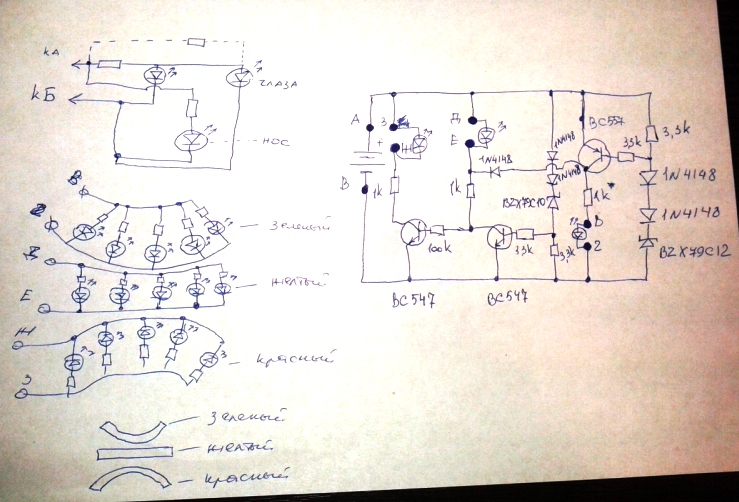 кА
кБ
ГЛАЗА
НОС
В
зелёный
Е
желтый
Ж
З
красный
зелёный
желтый
красный
А
В
З
+
1k
100k
BC547
Д
Е
1N4148
1k
13k
BC547
1N4148
1N4148
BZX79C10
3,3k
BC557
33k
1k*
В
2
3,3k
1N4148
1N4148
BZX79C12